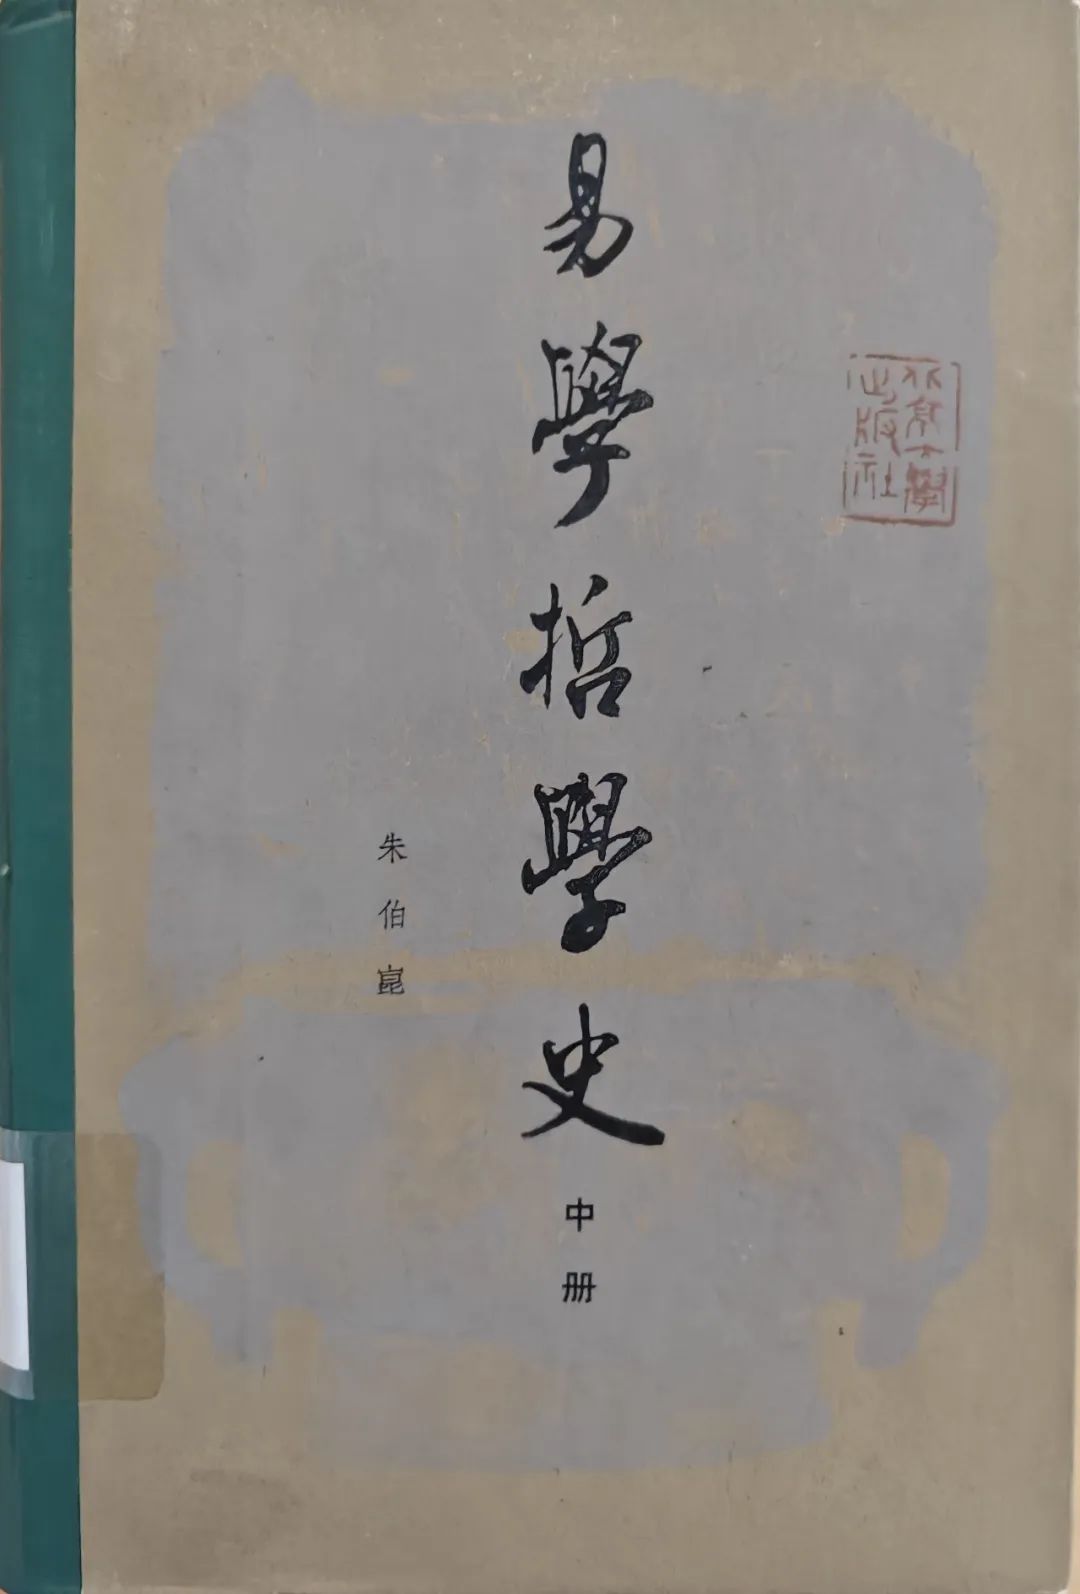 北京大學
出版社
易學哲學史
中册
朱伯崑